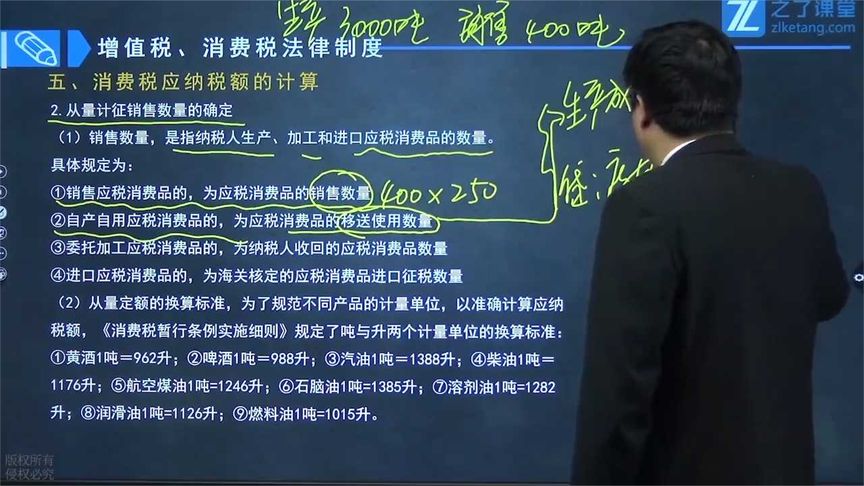 生产 3000吨 销售 400吨
之了课堂
zlketang.com
增值税、消费税法律制度
五、消费税应纳税额的计算
2.从量计征销售数量的确定
(1)销售数量,是指纳税人生产、加工和进口应税消费品的数量。
具体规定为:
①销售应税消费品的,为应税消费品的销售数量 400×250
②自产自用应税消费品的,为应税消费品的移送使用数量
③委托加工应税消费品的,为纳税人收回的应税消费品数量
④进口应税消费品的,为海关核定的应税消费品进口征税数量
(2)从量定额的换算标准,为了规范不同产品的计量单位,以准确计算应纳
税额,《消费税暂行条例实施细则》规定了吨与升两个计量单位的换算标准:
①黄酒1吨=962升;②啤酒1吨=988升;③汽油1吨=1388升;④柴油1吨=
1176升;⑤航空煤油1吨=1246升;⑥石脑油1吨=1385升;⑦溶剂油1吨=1282
升;⑧润滑油1吨=1126升;⑨燃料油1吨=1015升。
版权所有
侵权必究